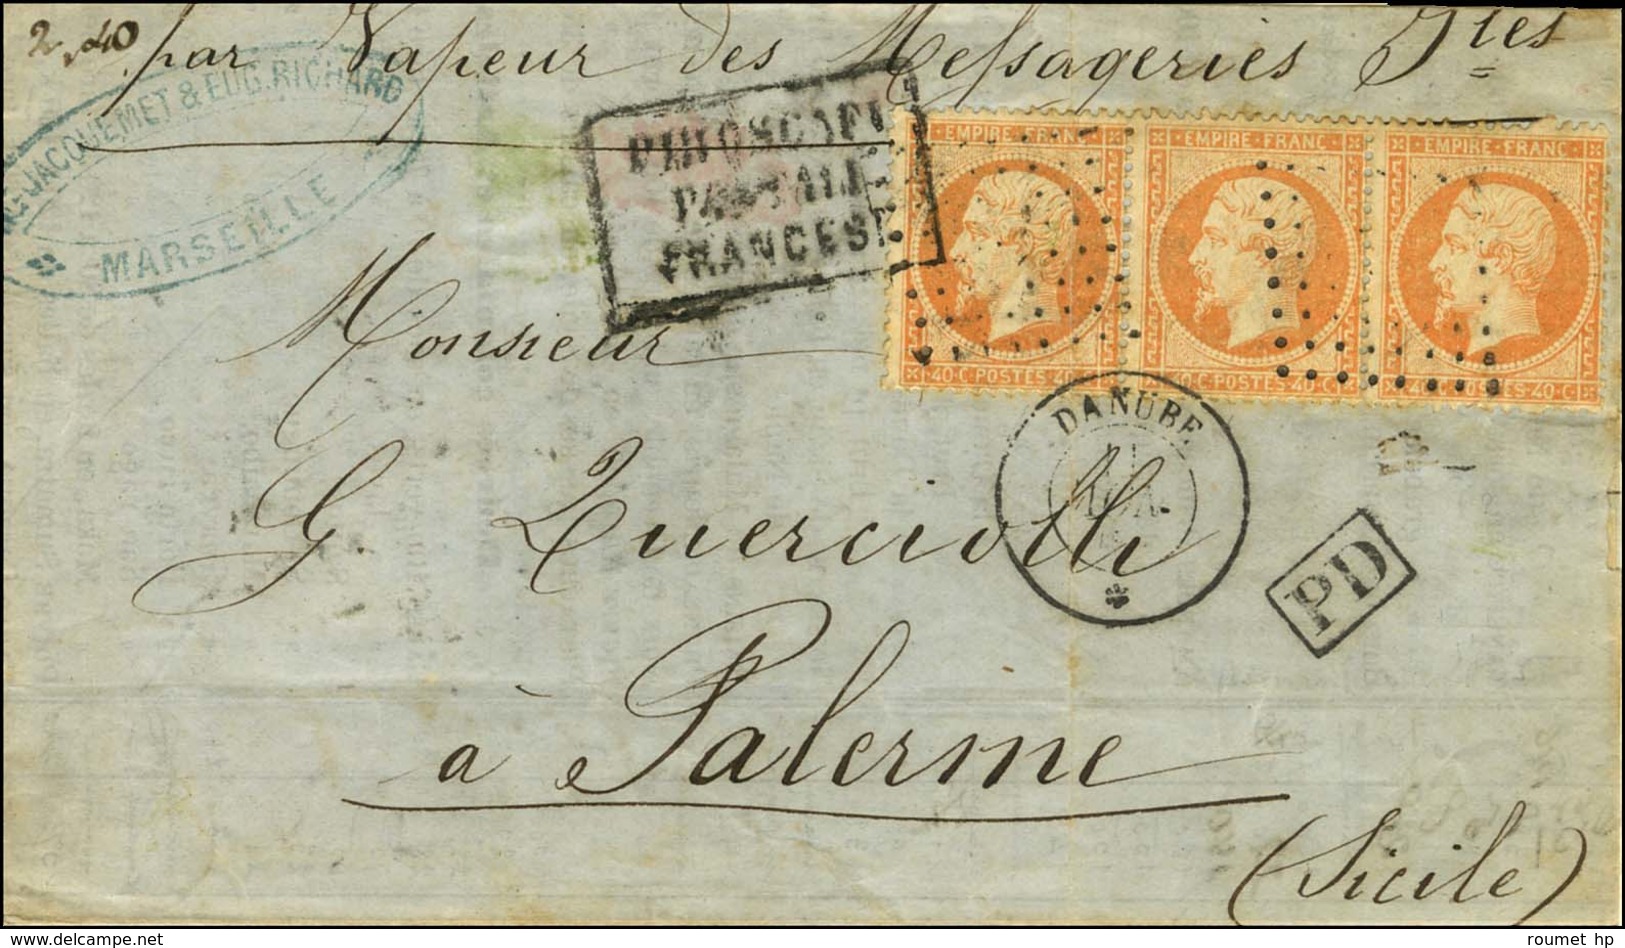 2,40
par Vapeur des Messageries Iles
JACQUEMET & EUG. RICHARD
MARSEILLE
PIROSCAFI
POSTALI
FRANCESI
EMPIRE FRANC
EMPIRE FRANC
EMPIRE FRANC
40 C POSTES 40 C
40 C POSTES 40 C
40 C POSTES 40 C
Monsieur
DANUBE
G. Quercioli
PD
à Palerme
(Sicile)
roumet hp